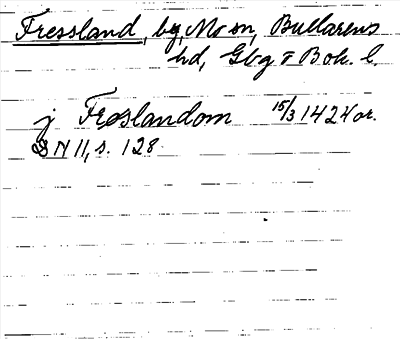 Fressland, by, Mo sn, Bullarens
hd, Gbg o Boh. l.
j Frøslandom 15/3 1424 or.
DN II, s. 128